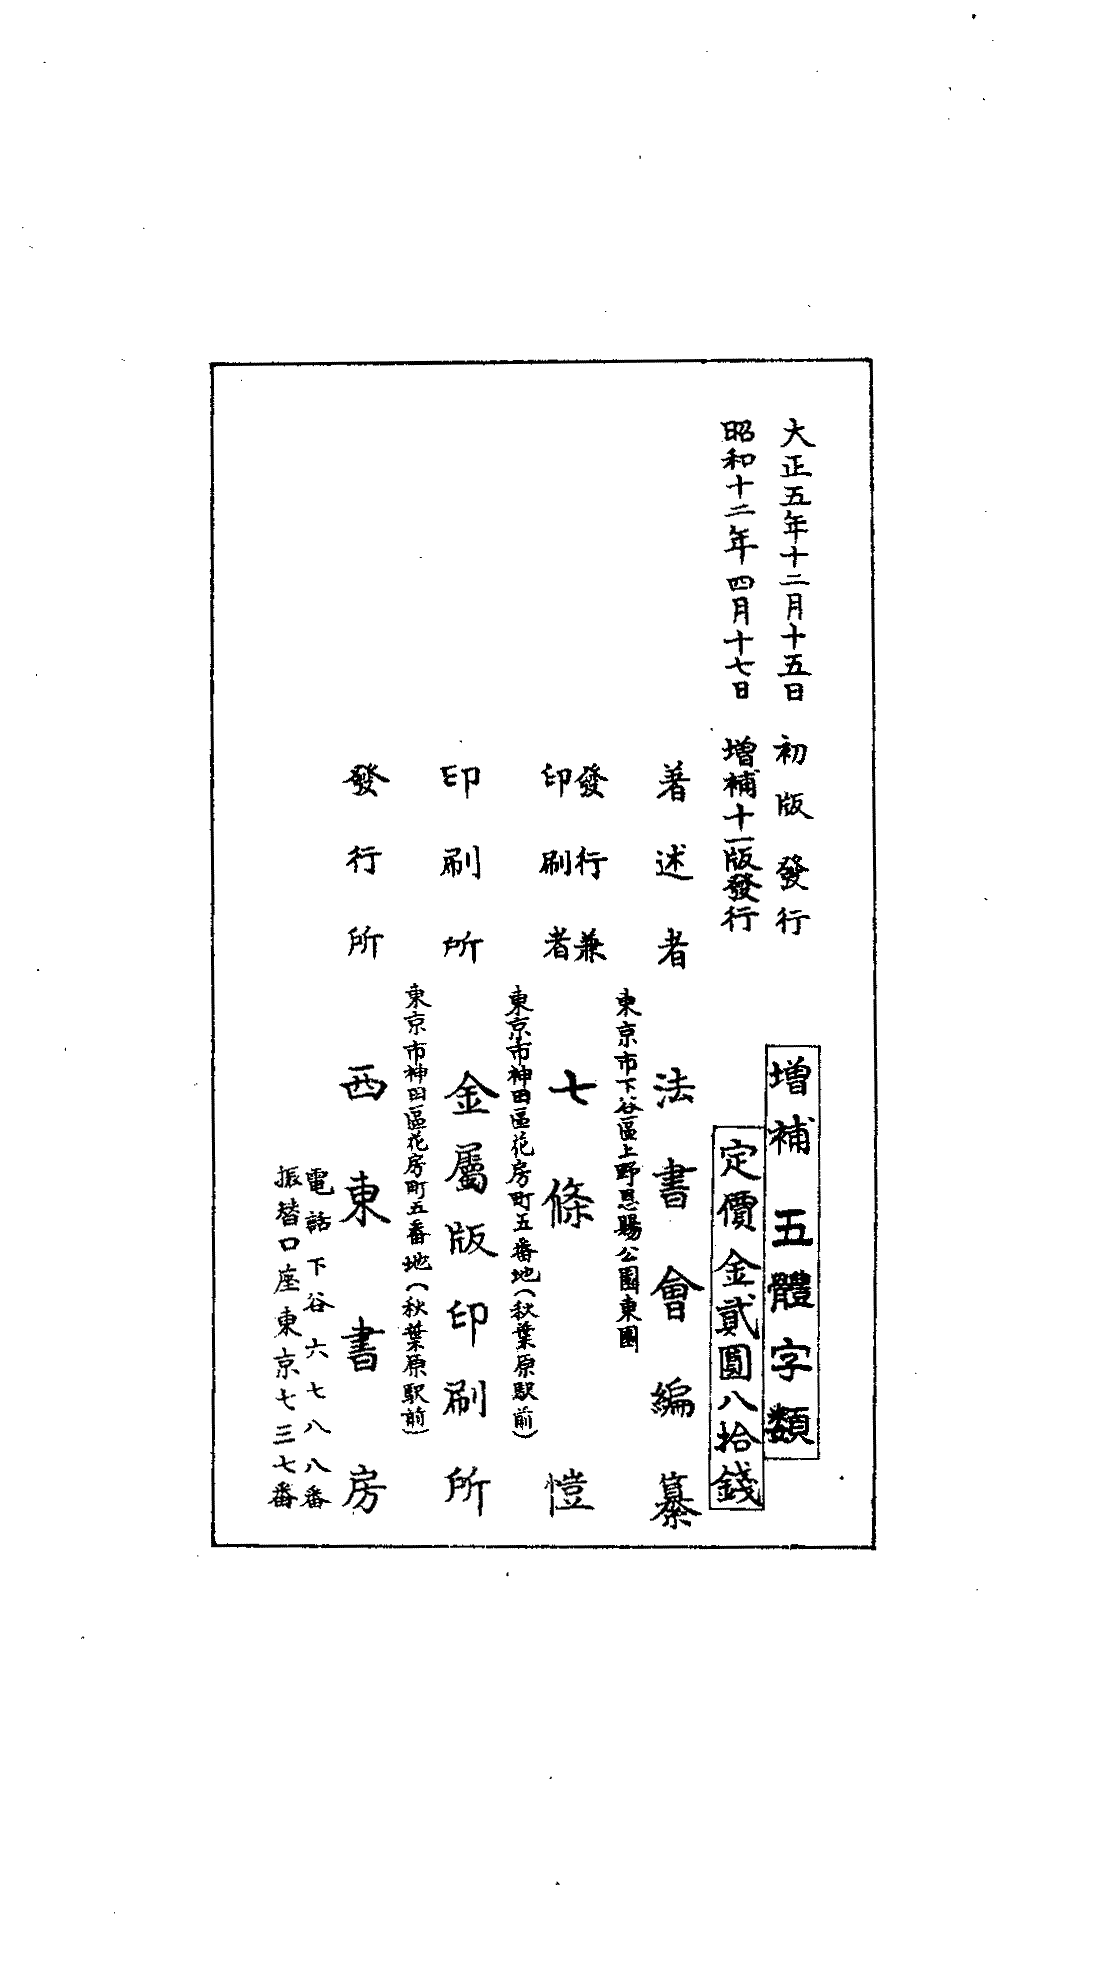 大正五年十二月十五日　初版發行
昭和十二年四月十七日　增補十一版發行
增補　五體字類
定價金貳圓八拾錢
著述者　法書會編纂
東京市下谷區上野恩賜公園東園
發行兼
印刷者　七條愷
東京市神田區花房町五番地(秋葉原駅前)
印刷所　金屬版印刷所
東京市神田區花房町五番地(秋葉原駅前)
發行所　西東書房
電話下谷六七八八番
振替口座東京七三七番